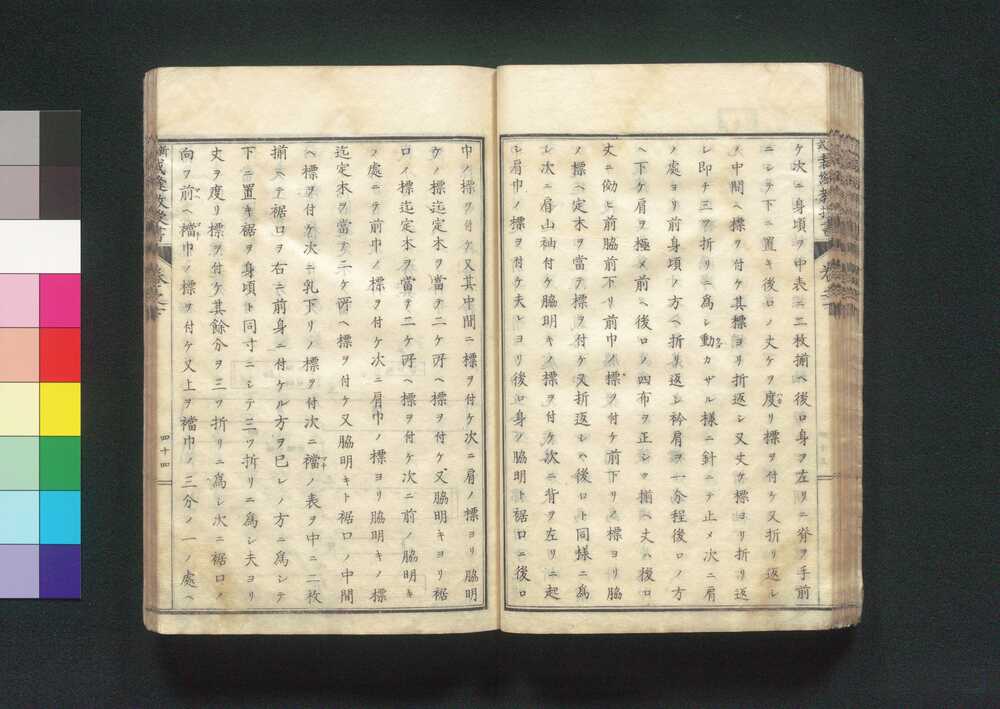 ケ次ニ身頃ヲ中表ニ二枚揃ヘ後ロ身ヲ左リニ脊ヲ手前
ニシテ下ニ置キ後ロノ丈ケヲ度リ標ヲ付ケ又折リ返シ
ノ中間ヘ標ヲ付ケ其標ヨリ折返シ又丈ケ標ヨリ折リ返
シ即チ三ツ折リニ爲シ動カザル樣ニ針ニテ止メ次ニ肩
ノ處ヨリ前身頃ノ方ヘ折リ返シ衿肩ヨ一分程後ロノ方
ヘ下ケ肩ヲ極メ前ヘ後ロノ四布ヲ正シク揃ヘ丈ハ後ロ
丈ニ傚ヒ前脇前下リ前巾ノ標ヲ付ケ前下リノ標ヨリ脇
ノ標ヘ定木ヲ當テ標ヲ付ケ又折返シヘ後ロト同樣ニ爲
シ次ニ肩山袖付ケ脇明キノ標ヲ付ケ次ニ背ヲ左リニ起
シ肩巾ノ標ヲ付ケ夫レヨリ後ロ身ノ脇明ト裾口ニ後ロ
巾ノ標ヲ付ケ又其中間ニ標ヲ付ケ次ニ肩ノ標ヨリ脇明
ケノ標迄定木ヲ當テ二ケ所ヘ標ヲ付ケ又脇明キヨリ裾
口ノ標迄定木ヲ當テ二ケ所ヘ標ヲ付ケ次ニ前ノ脇明キ
ノ處ニテ前巾ノ標ヲ付ケ次ニ肩巾ノ標ヨリ脇明キノ標
迄定木ヲ當テ二ケ所ヘ標ヲ付ケ又脇明キト裾口ノ中間
ヘ標ヲ付ケ次ニ乳下リノ標ヲ付次ニ襠ノ表ヲ中ニ二枚
揃ヘテ裾口ヲ右ニ前身ニ付ケル方ヲ己レノ方ニ爲シテ
下ニ置キ裾ヲ身頃ト同寸ニシテ三ツ折リニ爲シ夫ヨリ
丈ヲ度リ標ヲ付ケ其餘分ヲ三ツ折リニ爲シ次ニ裾口ノ
向フ前ヘ襠巾ノ標ヲ付ケ又上ヲ襠巾ノ三分ノ一ノ處ヘ
四十四